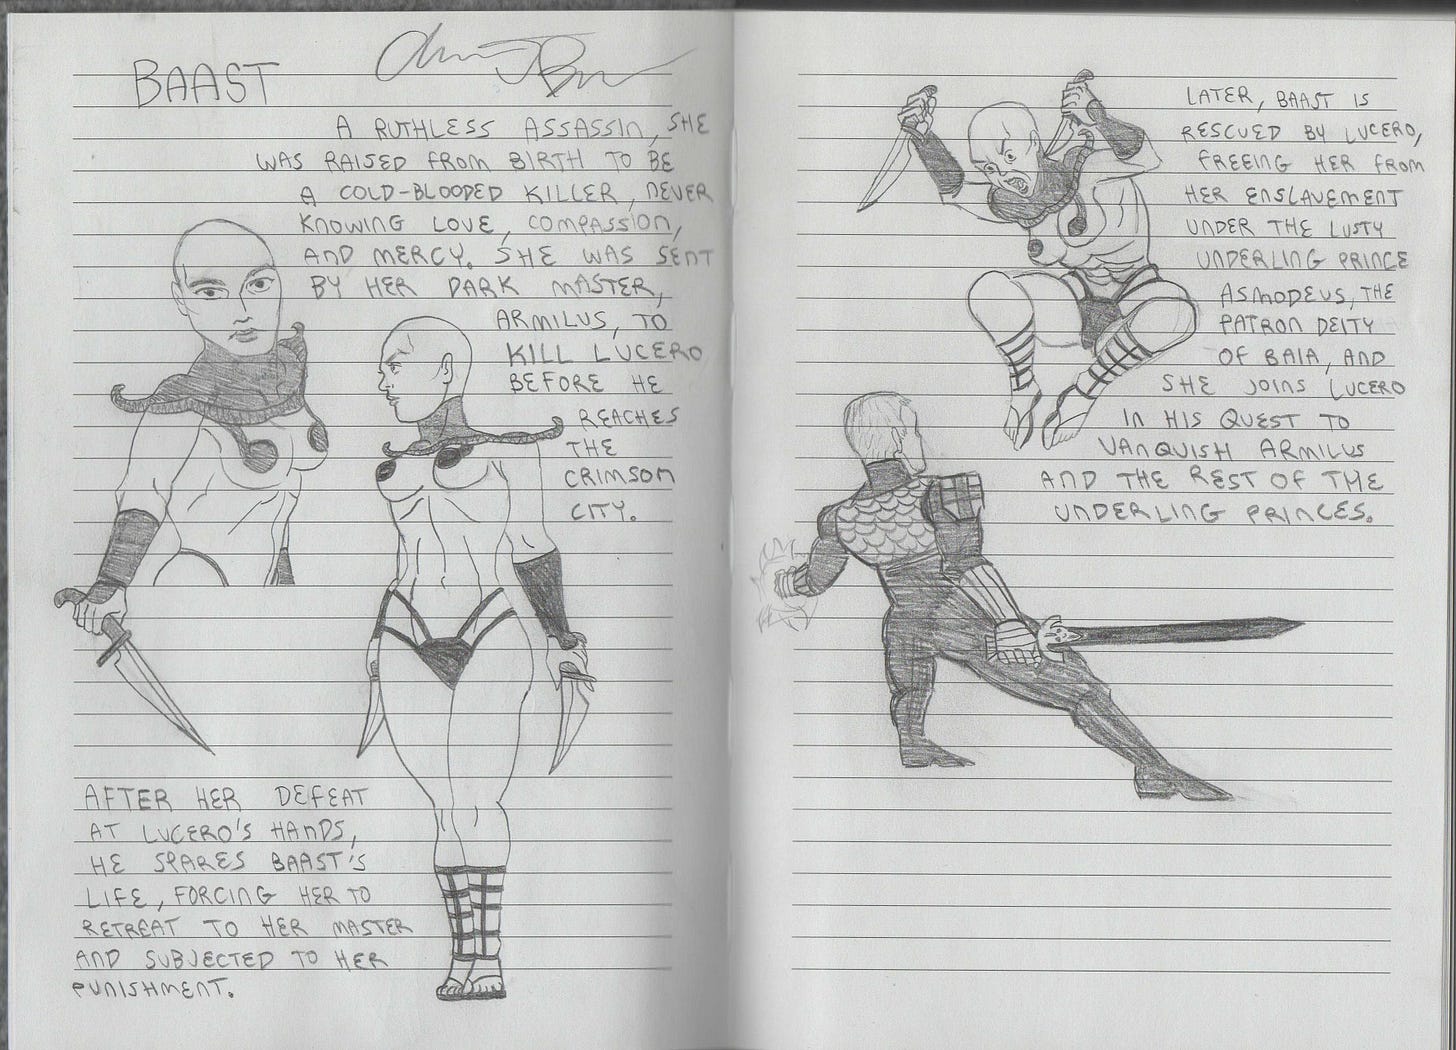 BAAST
A RUTHLESS ASSASSIN, SHE
WAS RAISED FROM BIRTH TO BE
A COLD-BLOODED KILLER, NEVER
KNOWING LOVE, COMPASSION,
AND MERCY. SHE WAS SENT
BY HER DARK MASTER,
ARMILUS, TO
KILL LUCERO
BEFORE HE
REACHES
THE
CRIMSON
CITY.
AFTER HER DEFEAT
AT LUCERO'S HANDS,
HE SPARES BAAST'S
LIFE, FORCING HER TO
RETREAT TO HER MASTER
AND SUBJECTED TO HER
PUNISHMENT.
LATER, BAAST IS
RESCUED BY LUCERO,
FREEING HER FROM
HER ENSLAVEMENT
UNDER THE LUSTY
UNDERLING PRINCE
ASMODEUS, THE
PATRON DEITY
OF BAIA, AND
SHE JOINS LUCERO
IN HIS QUEST TO
VANQUISH ARMILUS
AND THE REST OF THE
UNDERLING PRINCES.